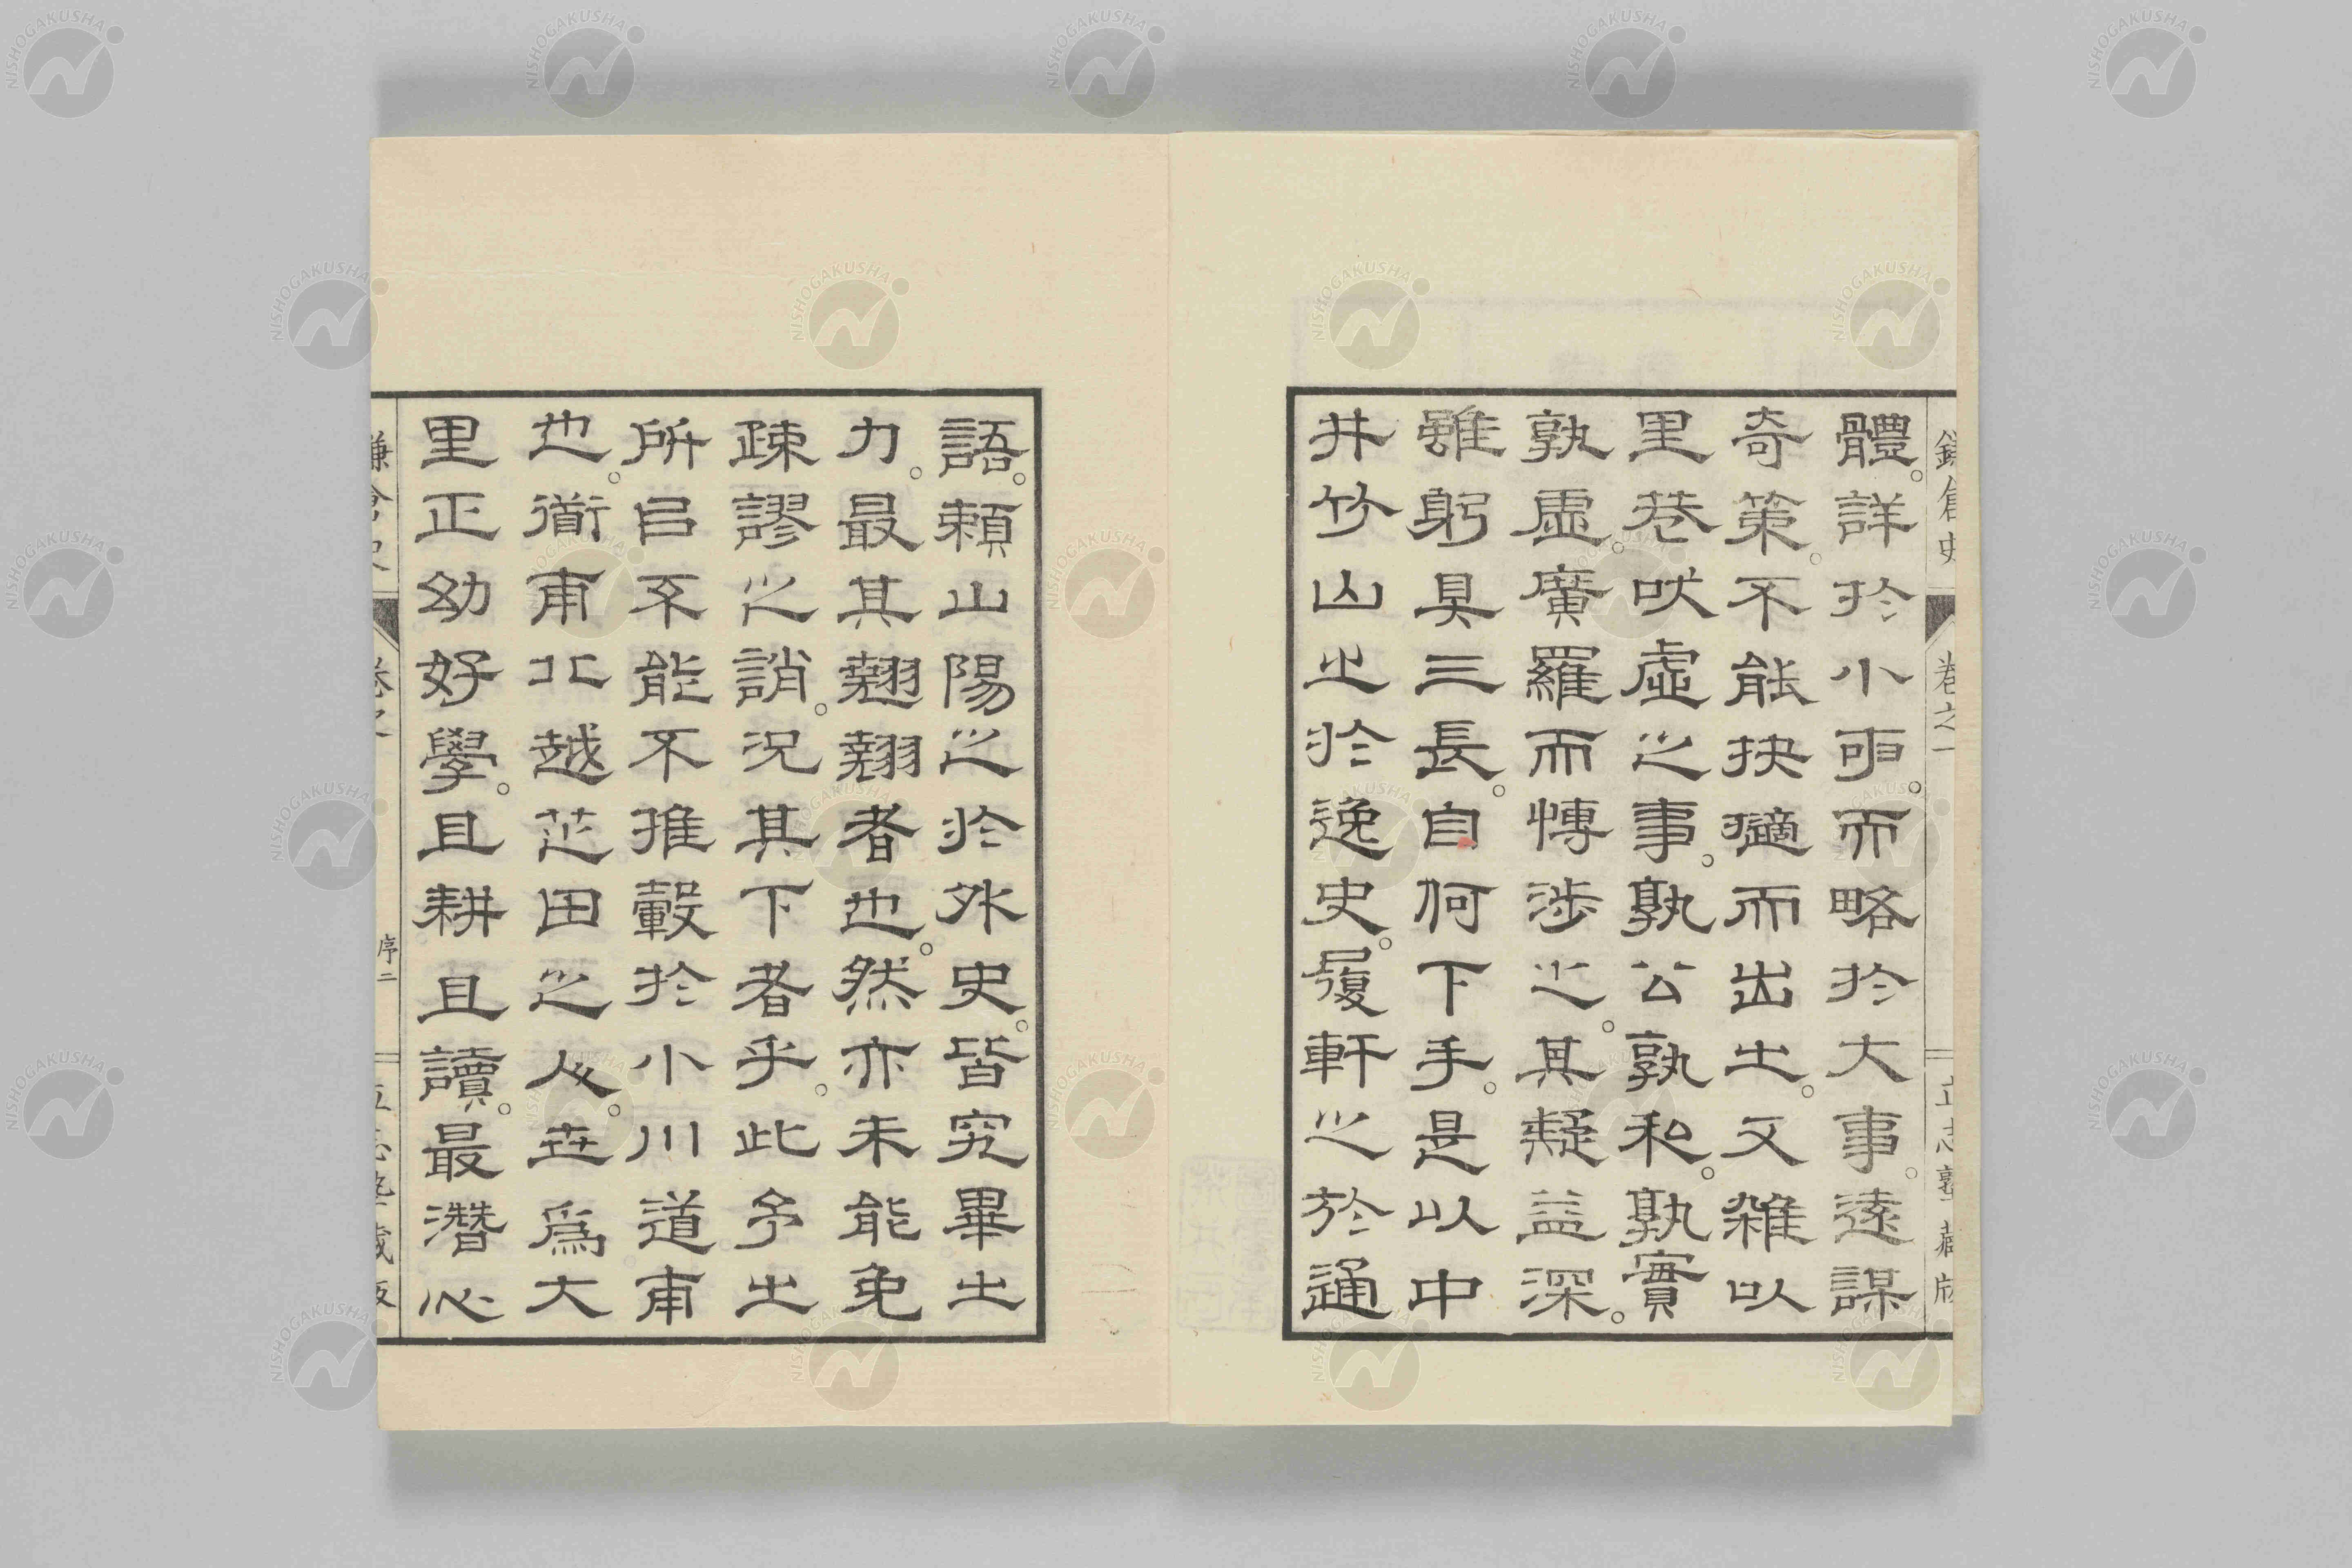 體。詳於小而。而略於大事。遠謀
奇策。不能抉擿而出之。又雜以
里巷吠虛之事。孰公孰私。孰實
孰虛。廣羅而博涉之。其疑益深。
雖躬具三長。自何下手。是以中
井竹山之於逸史。履軒之於通
語。賴山陽之於外史。皆究畢生
力。最其翹翹者也。然亦未能免
疎謬之誚。況其下者乎。此予之
所㠯不能不推轂於小川道甫
也。道甫北越芝田之人。世爲大
里正幼好學。且耕且讀。最潛心
鎌倉史 卷之一 立志塾藏版
鎌倉史 卷之 序二 立志塾藏版
NISHOGAKUSHA